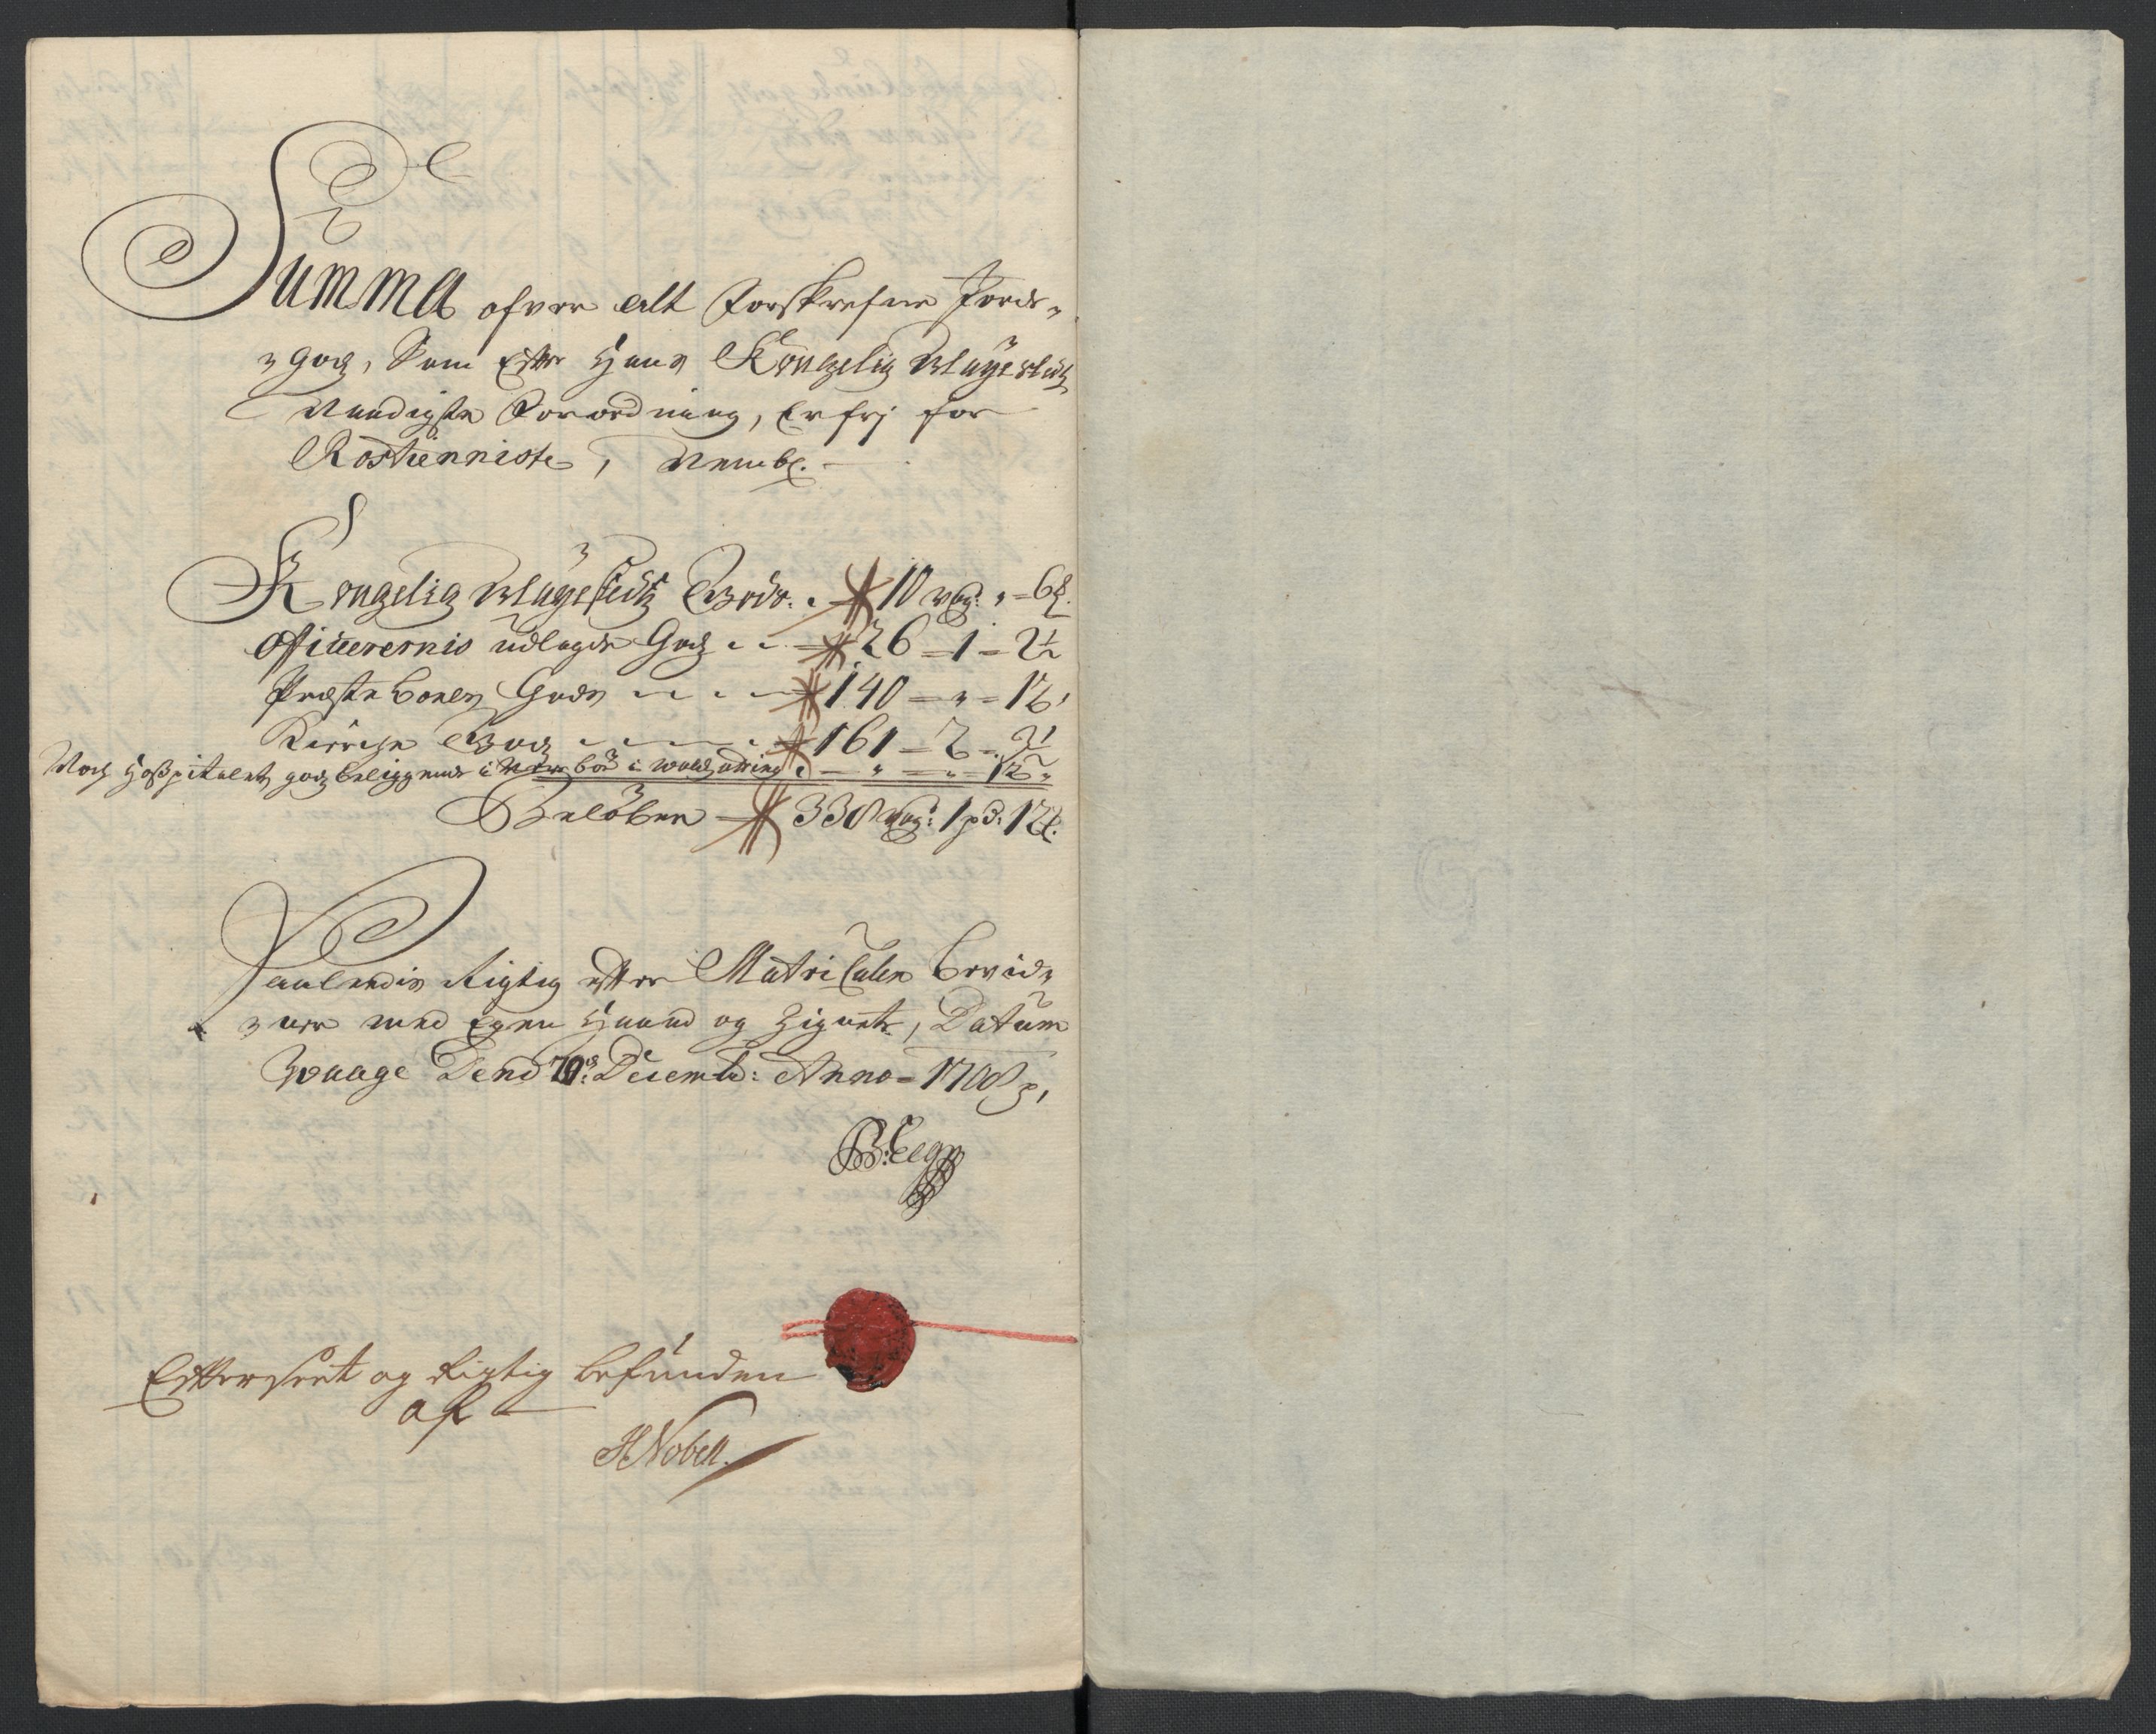 Summa ofver alt Forskrefne Jorde-
gotz, Som Efter Hans Kongelig Mayestetz
Naadigste Forordning, Er frj for
Rostienniste, Nembl.
Kongelig Mayestedtz Gods. 10 vog: " - 6 ℔.
Officerernis udlagde Gotz 26 - 1 - 2½
Præste bolens Gods 140 - " - 12
Kirche Gotz 161 - 2 - 3½
Noch Hospitalets gotz beliggende i " - " - 12
Beløben 338 vog: 1 pd: 12 ℔.
Saaledis Rigtig efter Matriculen bevid-
ner med Egen Haand og Zignete, Datum
Waage Dend Decemb: Anno 1708
Efterseet og Rigtig befunden
af
HNobell.